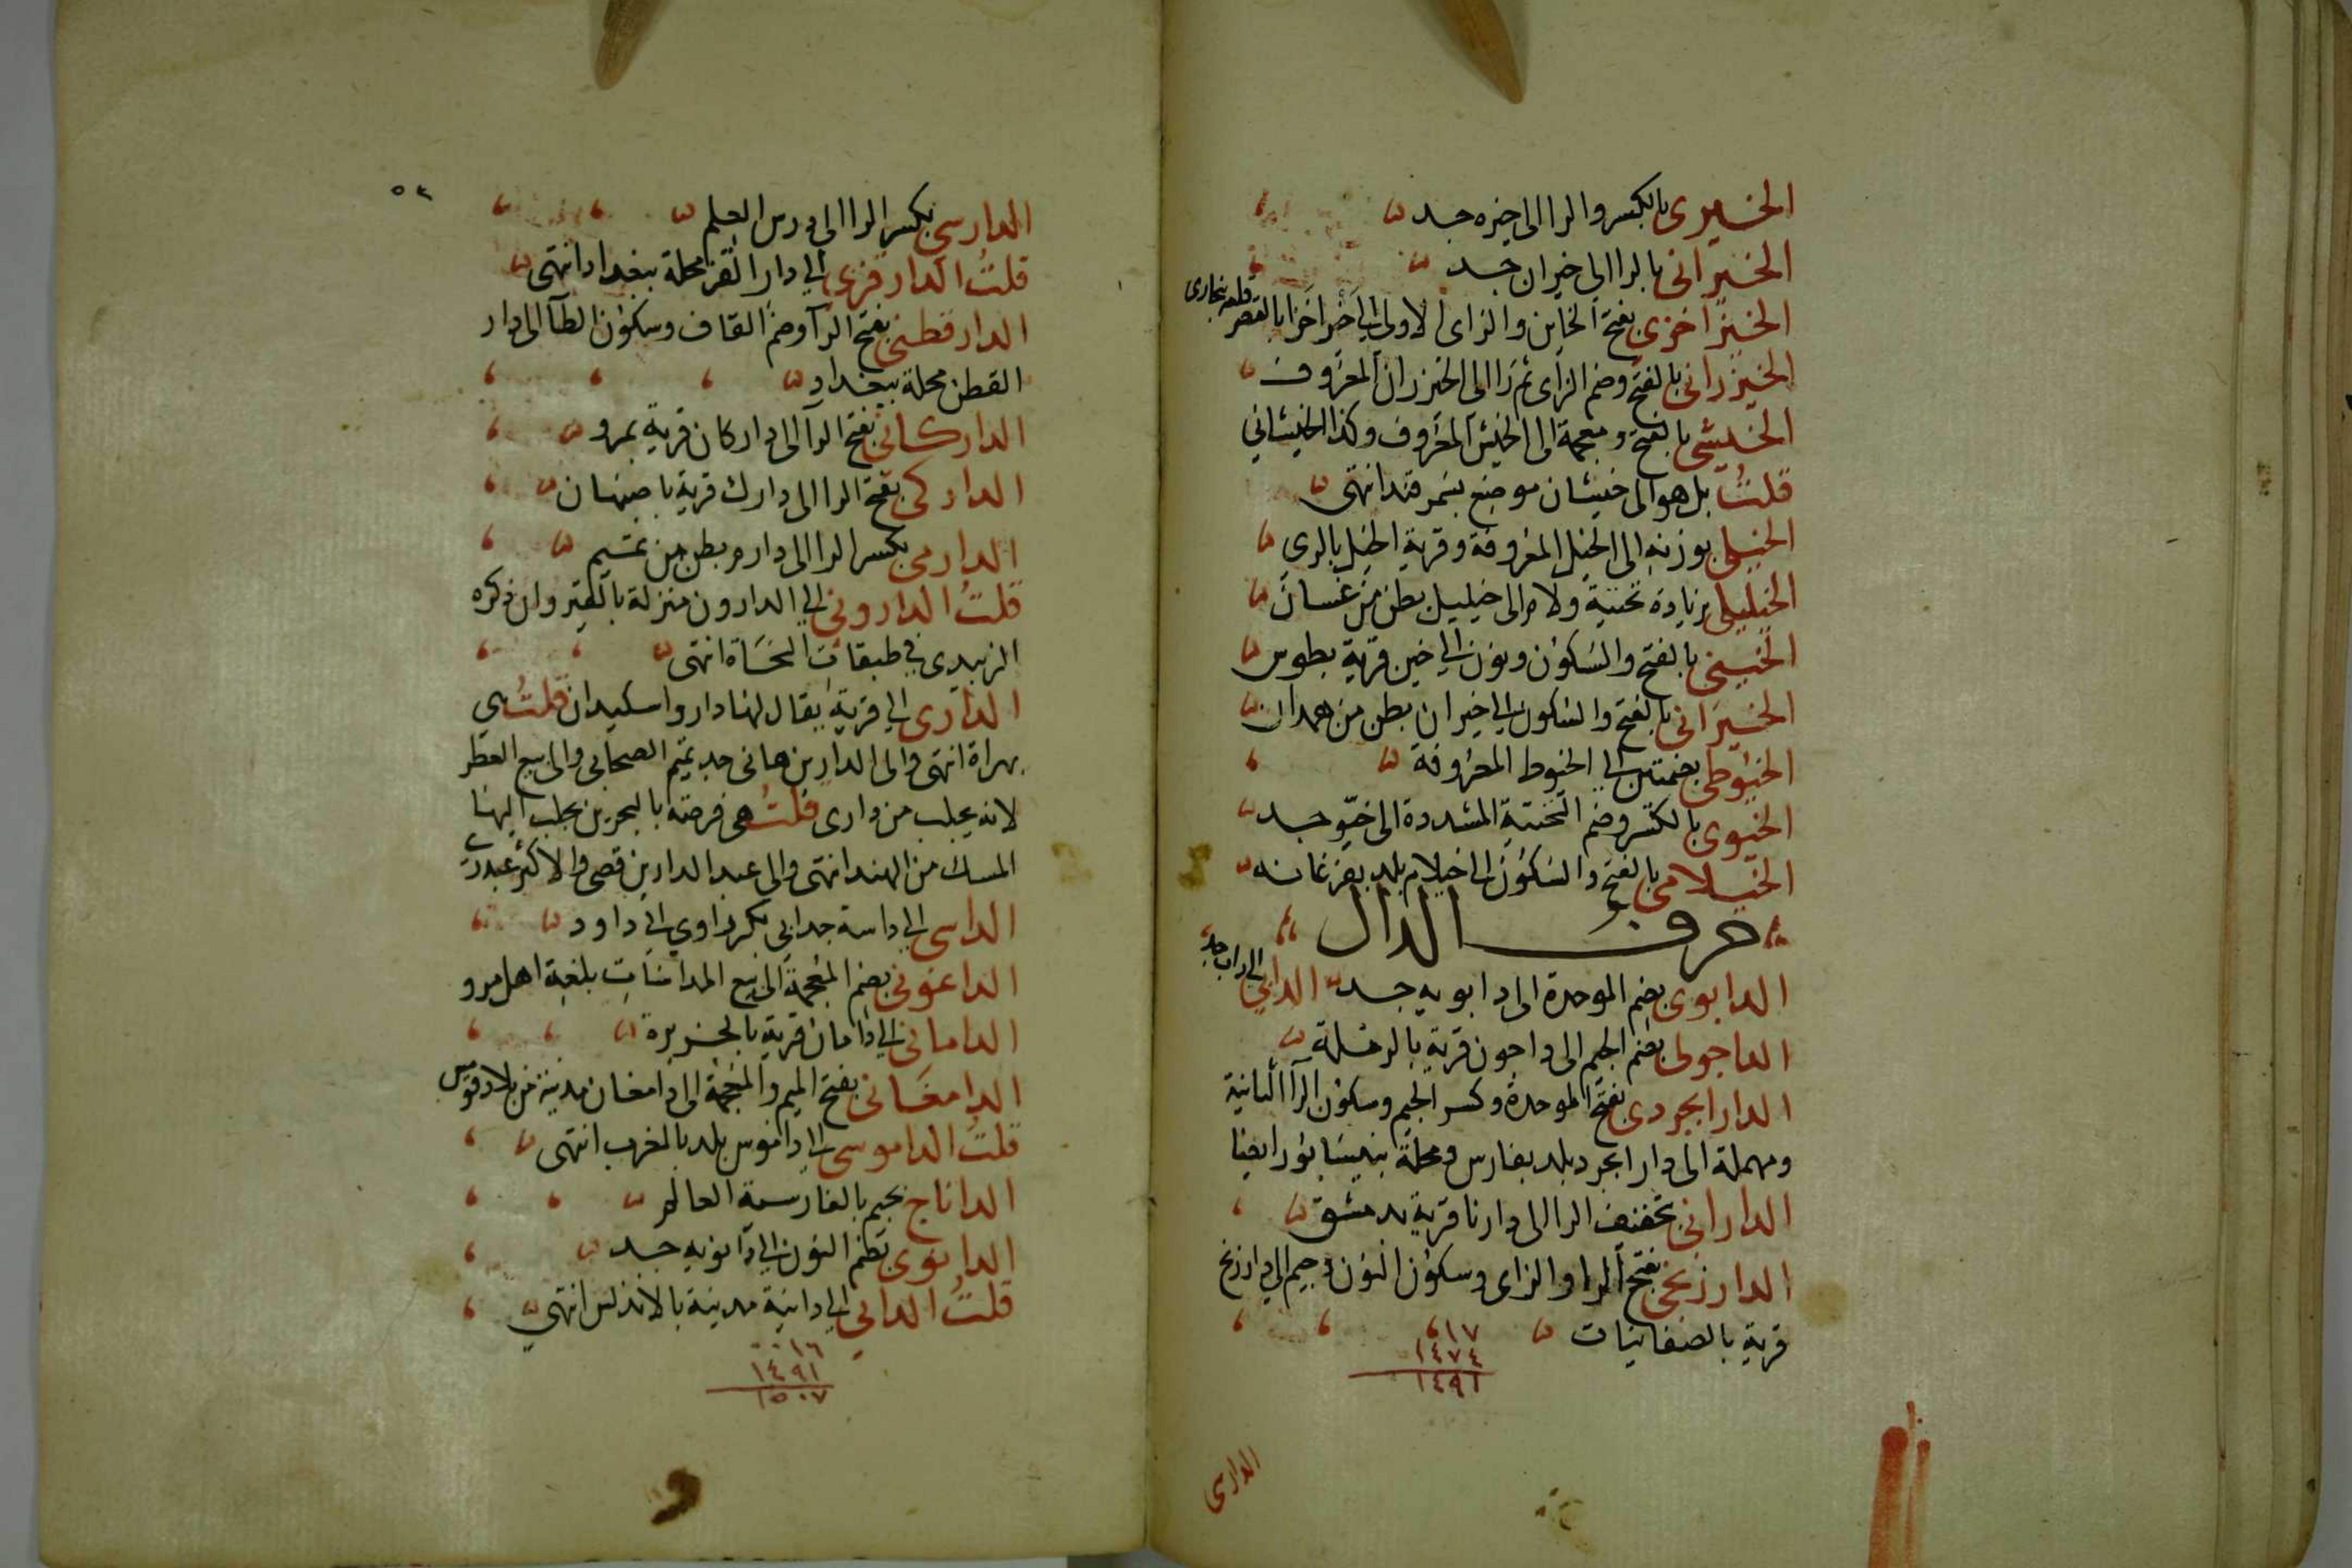 الخيري بالكسر والرا الى خيره جد
الخيراني بالرا الى خيران جد
الخيزاخزي بفتح الخاين والزاى الاولى الى خيزاخزا بالقصر قلعه ببخارى
الخيزراني بالفتح وضم الزاى ثم را الى الخيزران المعروف
الخيشي بالفتح ومعجمة الى الخيش المعروف وكذا الخيشاني
قلت بل هو الى خيشان موضع بسمرقند انتهى
الخيلي بوزنه الى الخيل المعروفة وقرية الخيل بالرى
الخيليلي بزيادة تحتية ولام الى خيليل بطن من غسان
الخيني بالفتح والسكون ونون الى خين قرية بطوس
الخيراني بالفتح والسكون الى خيران بطن من همدان
الخيوطي بضمتين الى الخيوط المعروفة
الخيوي بالكسر وضم التحتية المشددة الى خيو جد
الخيلامي بالفتح والسكون الى خيلام بلد بفرغانه
حرف الدال
الدابوي بضم الموحدة الى دابويه جد الدابي الى داب جد
الداجوني بضم الجيم الى داجون قرية بالرملة
الدارابجردي بفتح الموحدة وكسر الجيم وسكون الرا الثانية
ومهملة الى دارابجرد بلد بفارس ومحلة بنيسابور ايضا
الداراني بتخفيف الرا الى داريا قرية بدمشق
الدارزنجي بفتح الرا والزاى وسكون النون وجيم الى دارزنج
قرية بالصغانيات
١٧
١٤٧٤
١٤٩١
الدارسي
٥٤
الدارسي بكسر الرا الى درس العلم
قلت الدارقزي الى دار القز محلة ببغداد انتهى
الدارقطني بفتح الرا وضم القاف وسكون الطا الى دار
القطن محلة ببغداد
الداركاني بفتح الرا الى داركان قرية بمرو
الداركي بفتح الرا الى دارك قرية باصبهان
الدارمي بكسر الرا الى دارم بطن من تميم
قلت الداروني الى الدارون منزلة بالقيروان ذكره
الزبيدي في طبقات النحاة انتهى
الداري الى قرية يقال لها دار واسكيدان قلت هي
بهراة انتهى والى الدار بن هاني جد تميم الصحابي والى بيع العطر
لانه يجلب من دارى قلت هي فرضة بالبحرين يجلب اليها
المسك من الهند انتهى والى عبد الدار بن قصي والاكثر عبدري
الداسي الى داسة جد ابي بكر راوي ابي داود
الداغوني بضم المعجمة الى بيع المداسات بلغة اهل مرو
الداماني الى دامان قرية بالجزيرة
الدامغاني بفتح الميم والمعجمة الى دامغان مدينة من بلاد قومس
قلت الداموسي الى داموس بلد بالمغرب انتهى
الداناج بجيم بالفارسية العالم
الدانوي بضم النون الى دانويه جد
قلت الداني الى دانية مدينة بالاندلس انتهى
١٦
١٤٩١
١٥٠٧